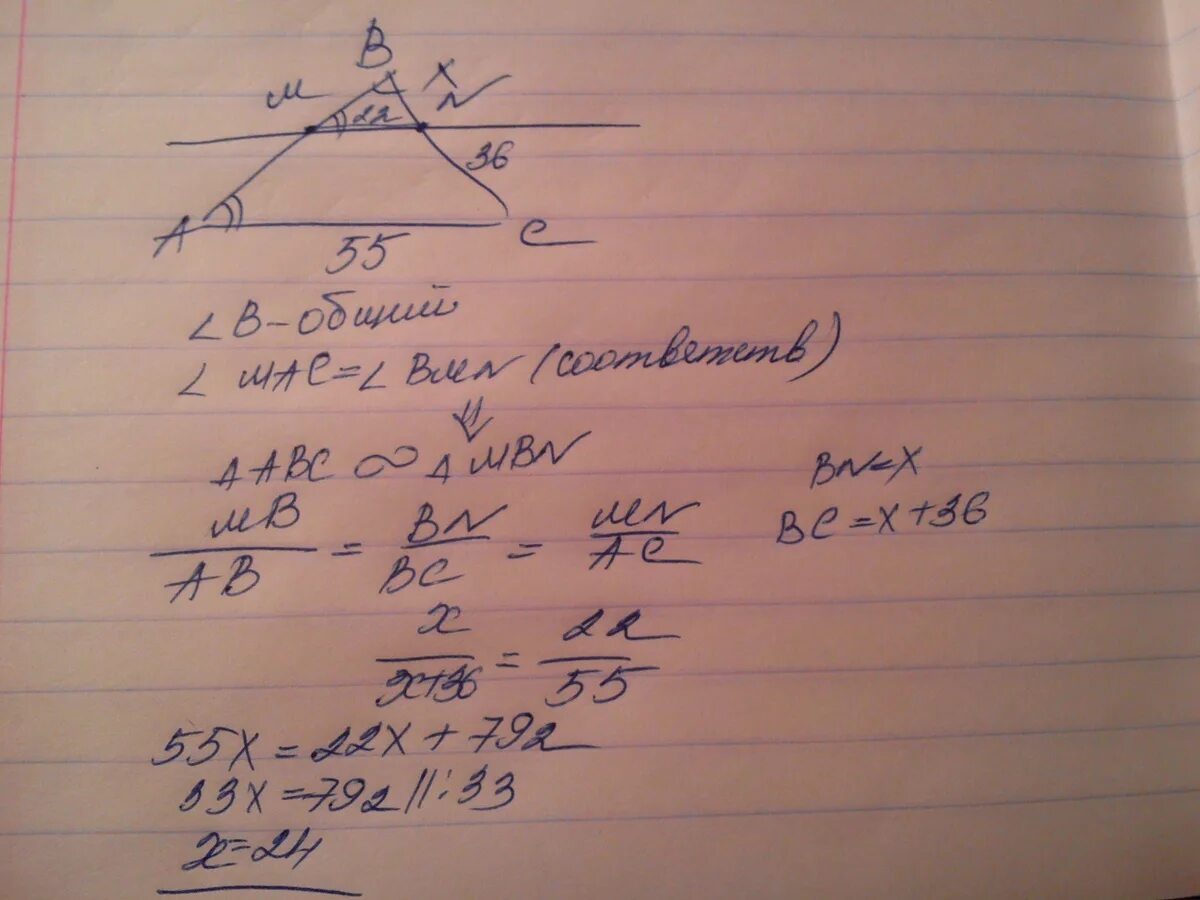 B
M
X
N
22
36
A
C
55
∠ B - общий
∠ MAC = ∠ BMN (соответств)
⇓
Δ ABC ∾ Δ MBN
BN = X
MB/AB = BN/BC = MN/AC
BC = X + 36
x/x+36 = 22/55
55X = 22X + 792
33X = 792 ||:33
x = 24